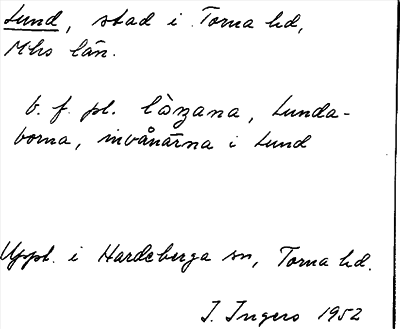 Lund, stad i Torna hd,
Mhs län.
b. f. pl. làzana, Lunda-
borna, invånarna i Lund
Uppt. i Hardeberga sn, Torna hd.
J. Ingers 1952